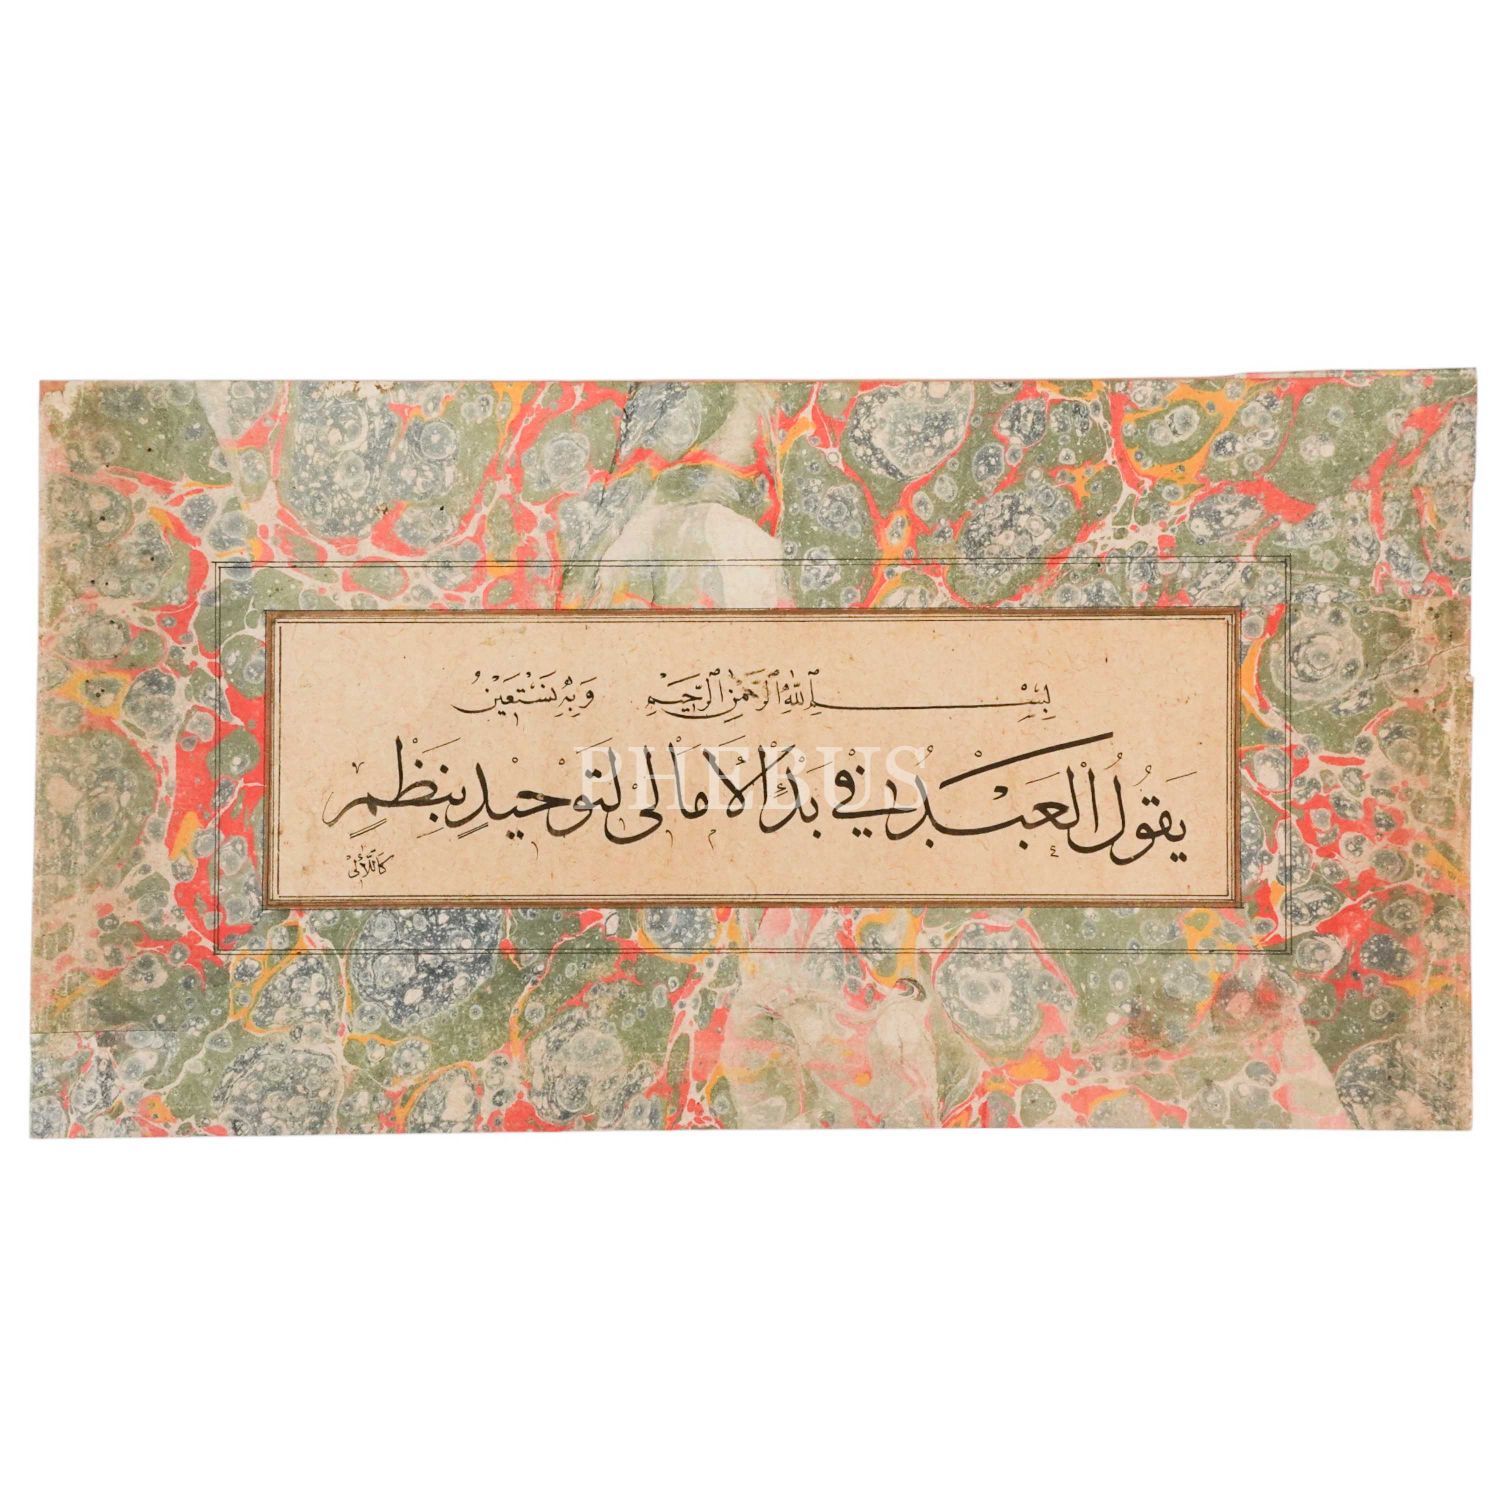 بِسْمِ اللهِ الرَّحْمٰنِ الرَّحِيْمِ وَبِهِ نَسْتَعِيْنُ
يَقُولُ الْعَبْدُ فِي بَدْإِ الْاَمَالِى لِتَوْحِيْدٍ بِنَظْمٍ
كَاللَّآلِى
PHEBUS